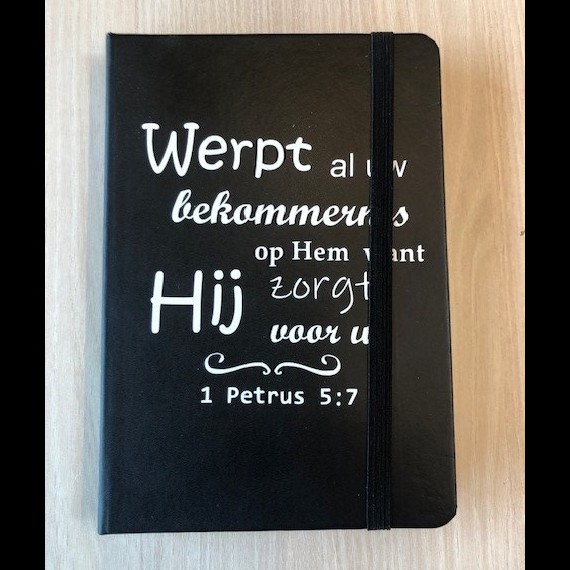 Werpt al uw
bekommernis
op Hem want
Hij zorgt
voor u
1 Petrus 5:7